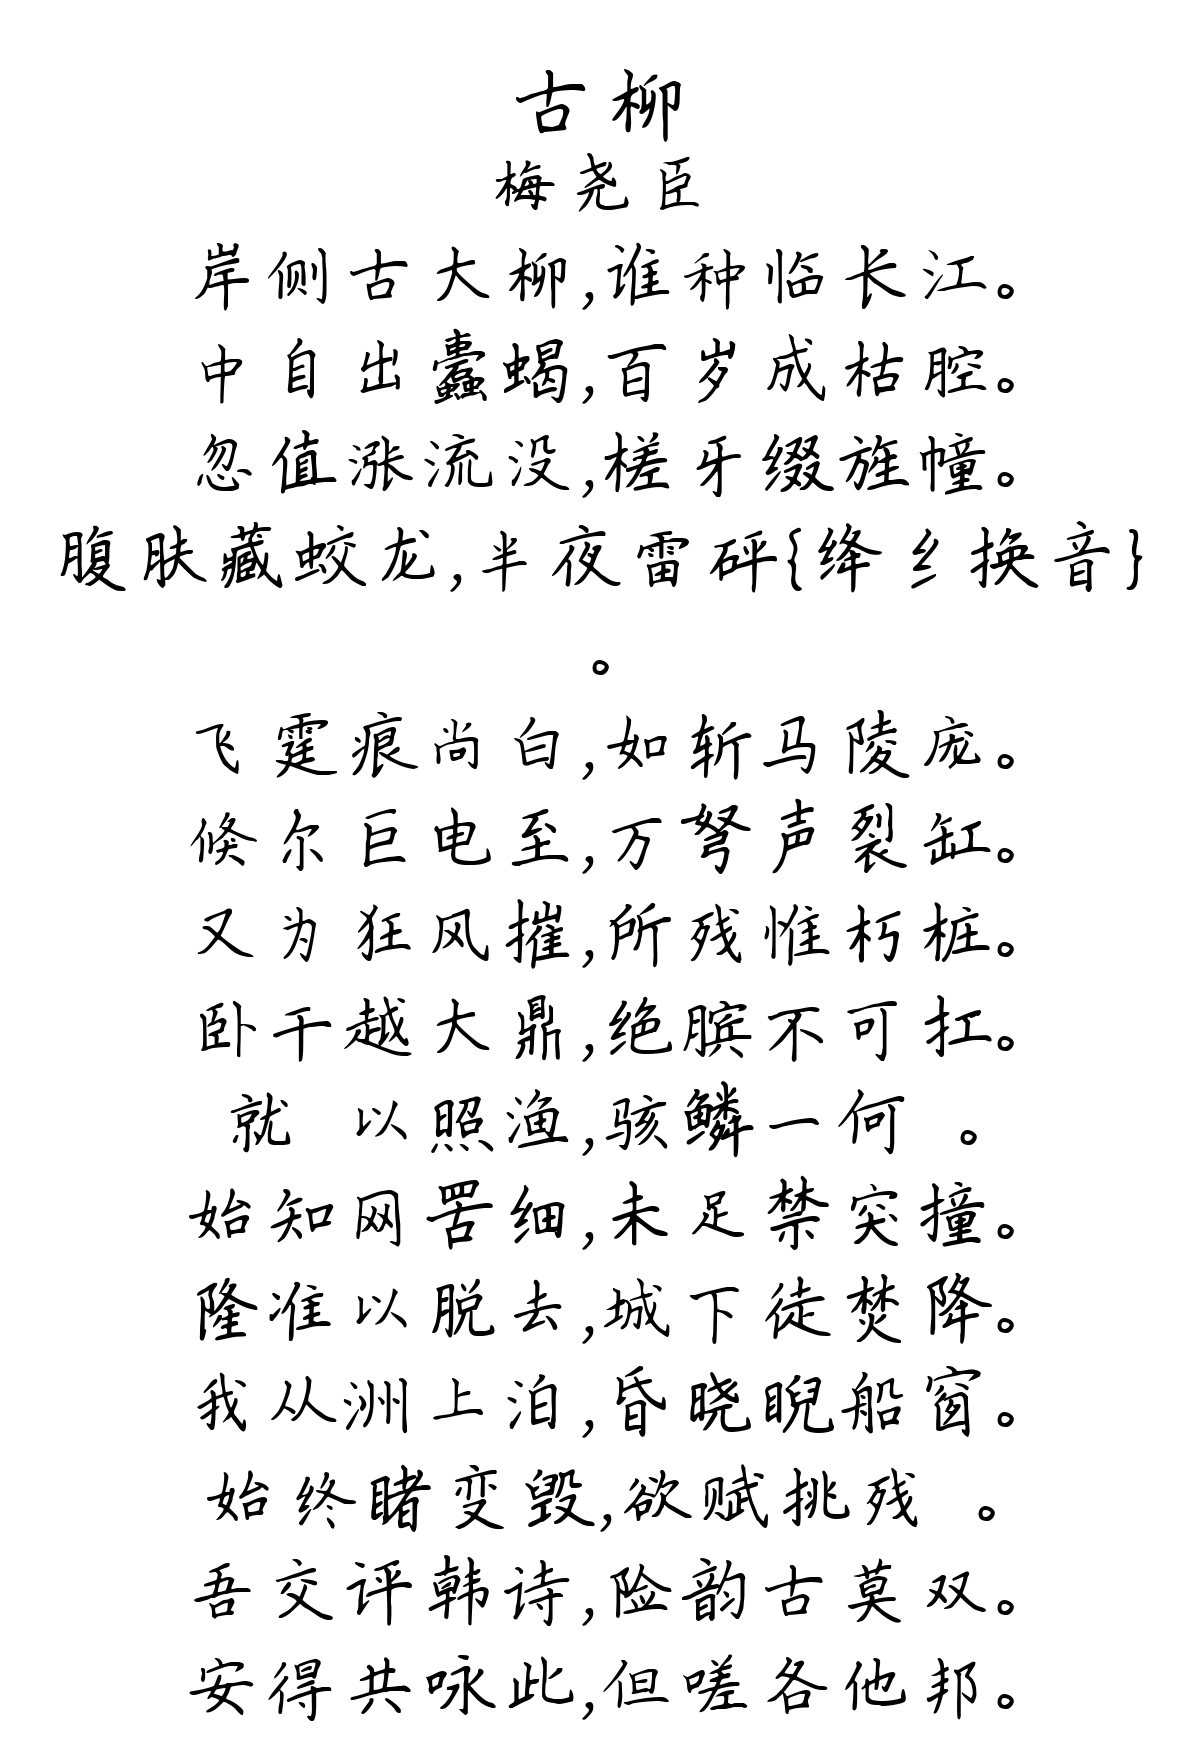 古柳
梅尧臣
岸侧古大柳,谁种临长江。
中自出蠹蝎,百岁成枯腔。
忽值涨流没,槎牙缀旌幢。
腹肤藏蛟龙,半夜雷砰{绛纟换音}
。
飞霆痕尚白,如斩马陵庞。
倏尔巨电至,万弩声裂缸。
又为狂风摧,所残惟朽桩。
卧干越大鼎,绝膑不可扛。
就 以照渔,骇鳞一何 。
始知网罟细,未足禁突撞。
隆准以脱去,城下徒焚降。
我从洲上泊,昏晓睨船窗。
始终睹变毁,欲赋挑残 。
吾交评韩诗,险韵古莫双。
安得共咏此,但嗟各他邦。